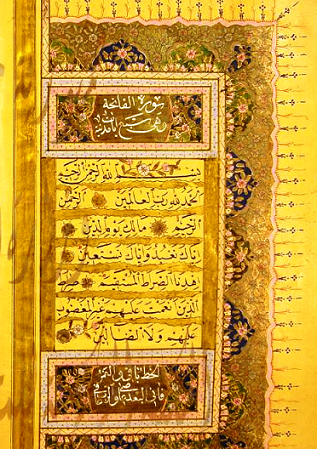 سُورَةُ الْفَاتِحَةِ
وهى
بِسْمِ اللهِ الرَّحْمٰنِ الرَّحِيمِ
اَلْحَمْدُ لِلّٰهِ رَبِّ الْعَالَمِينَ اَلرَّحْمٰنِ
الرَّحِيمِ مَالِكِ يَوْمِ الدِّينِ
اِيَّاكَ نَعْبُدُ وَاِيَّاكَ نَسْتَعِينُ
اِهْدِنَا الصِّرَاطَ الْمُسْتَقِيمَ صِرَاطَ
الَّذِينَ اَنْعَمْتَ عَلَيْهِمْ غَيْرِ الْمَغْضُوبِ
عَلَيْهِمْ وَلَا الضَّالِّينَ
الخط باق